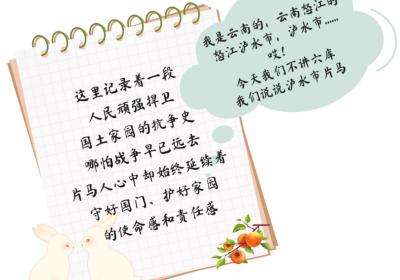 我是云南的，云南怒江的
怒江泸水市，泸水市......
哎！
今天我们不讲六库
我们说说泸水市片马
这里记录着一段
人民顽强捍卫
国土家园的抗争史
哪怕战争早已远去
片马人心中却始终延续着
守好国门、护好家园
的使命感和责任感